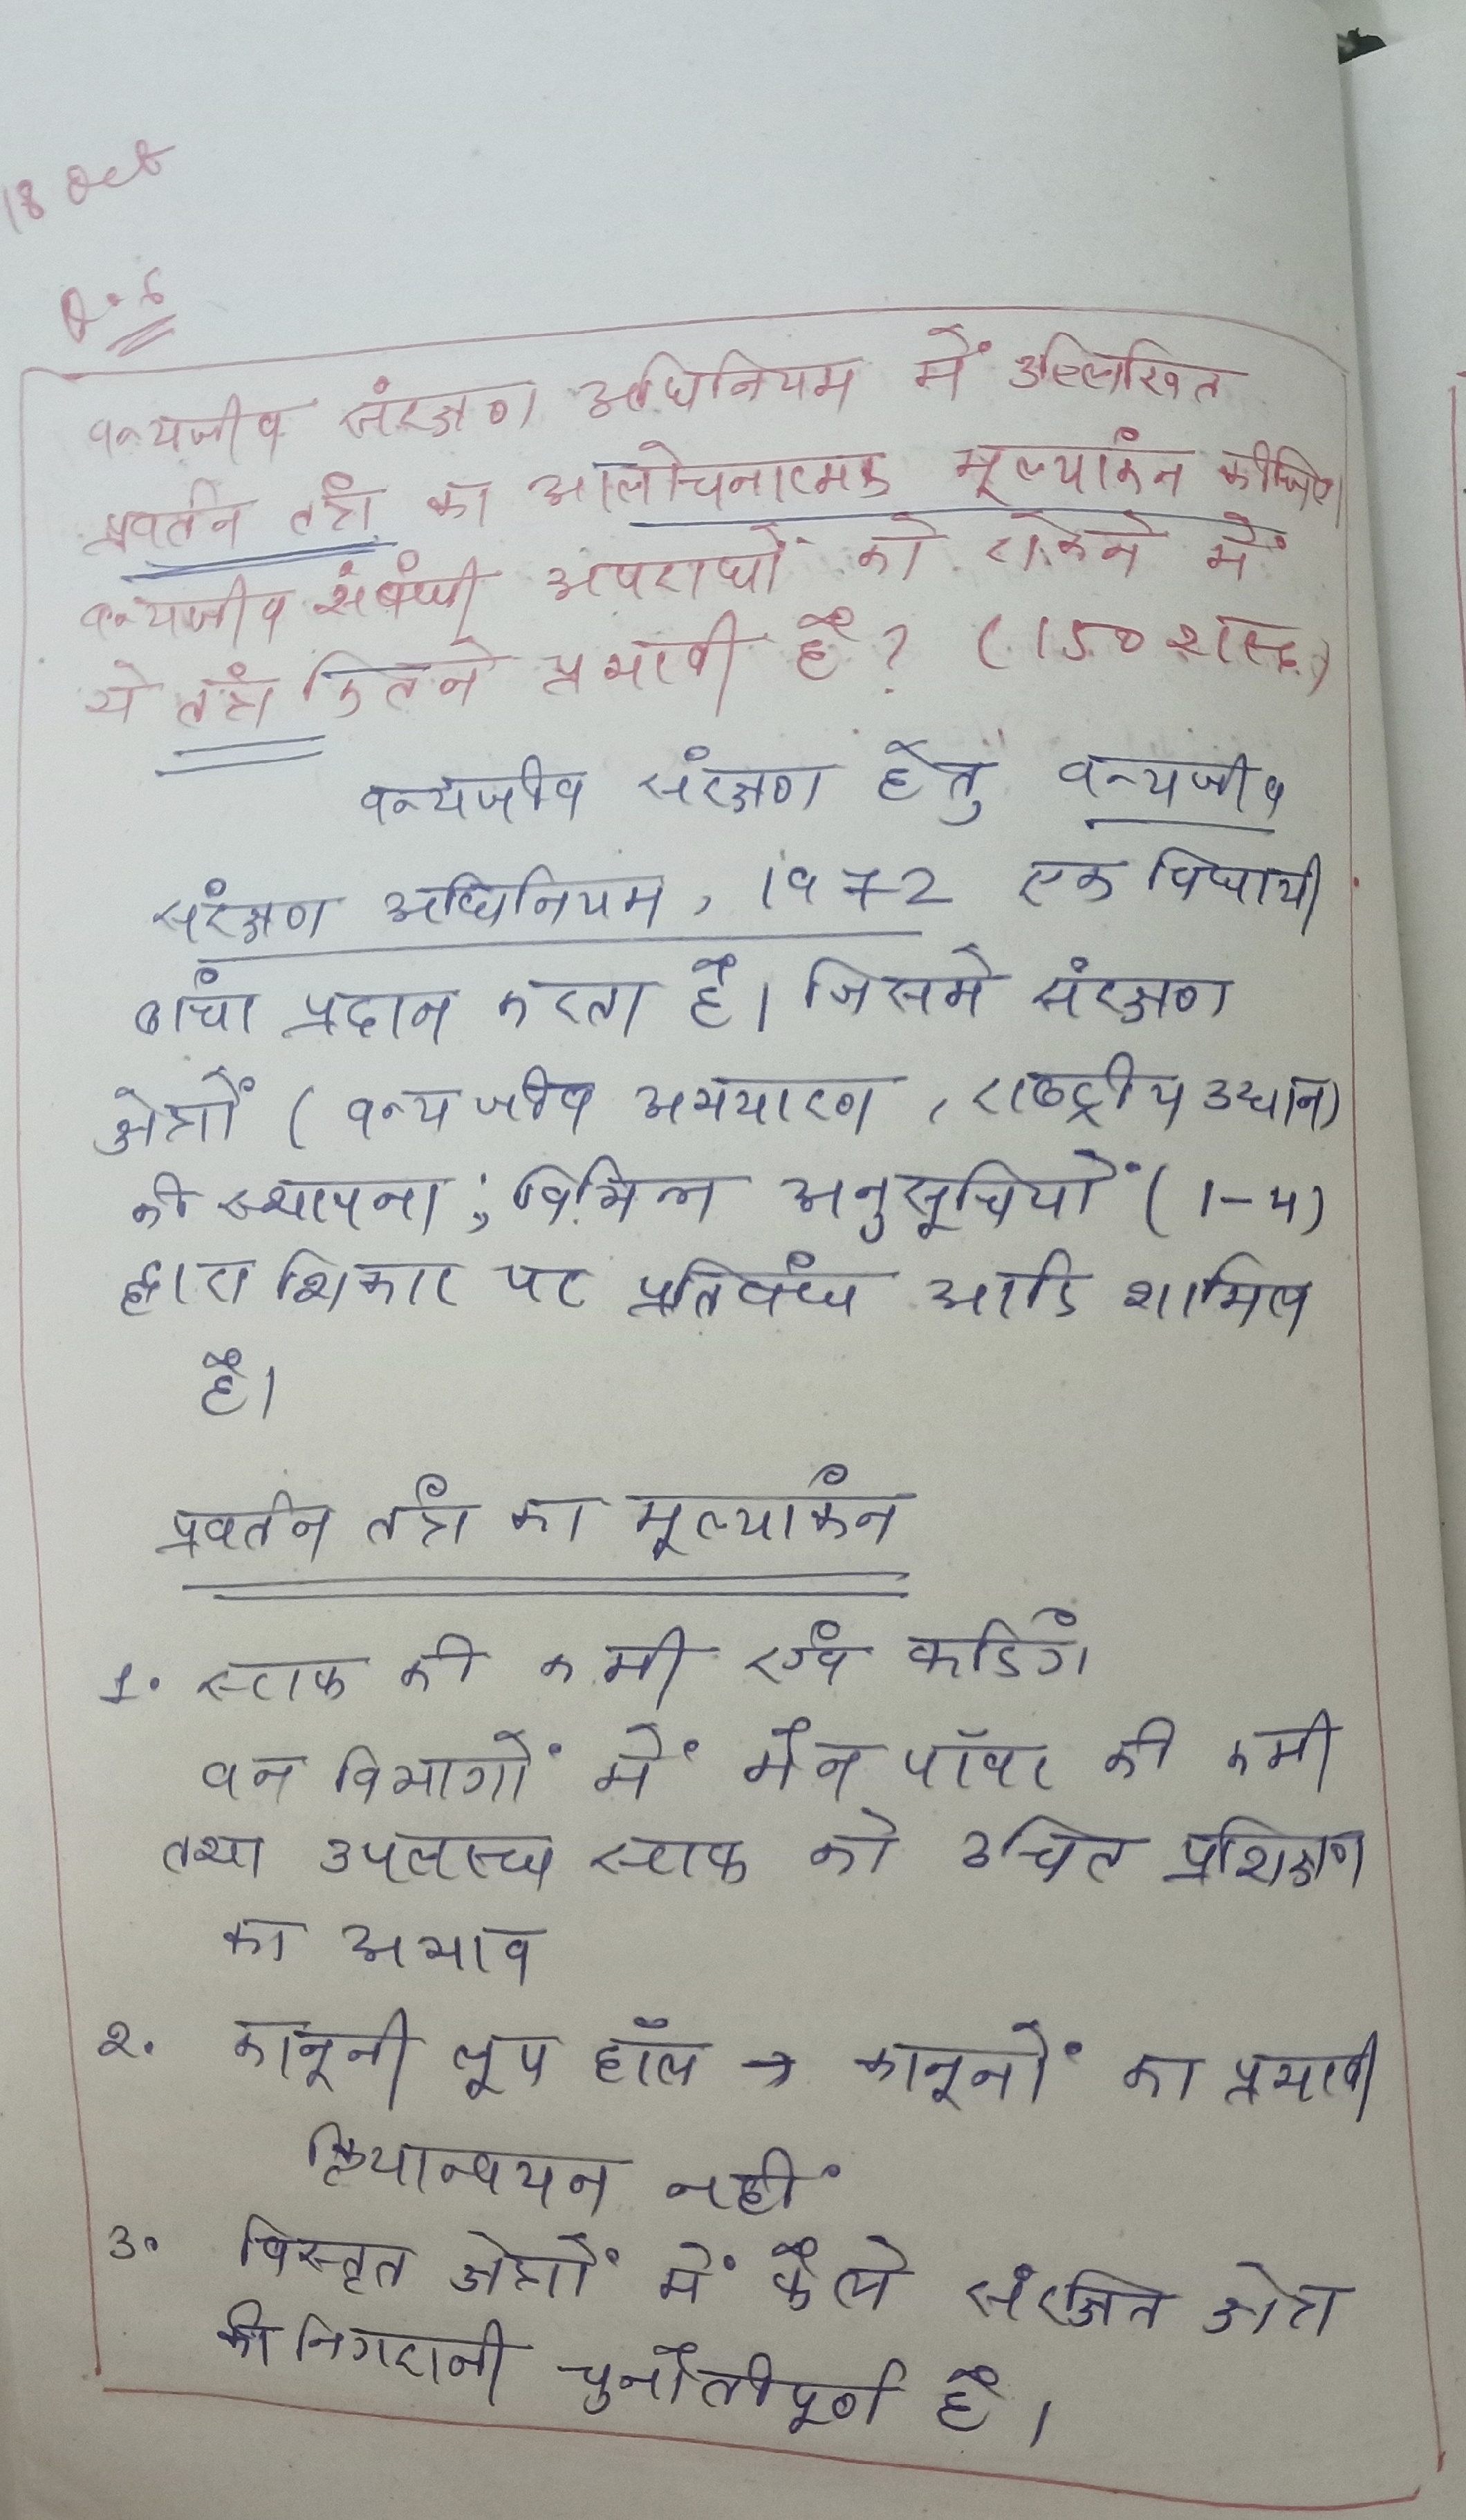 18 Oct
Q.6
वन्यजीव संरक्षण अधिनियम में उल्लिखित
प्रवर्तन तंत्र का आलोचनात्मक मूल्यांकन कीजिए।
वन्यजीव संबंधी अपराधों को रोकने में
ये तंत्र कितने प्रभावी है? (150 शब्द)
वन्यजीव संरक्षण हेतु वन्यजीव
संरक्षण अधिनियम, 1972 एक विधायी
ढांचा प्रदान करता है। जिसमे संरक्षण
क्षेत्रों (वन्यजीव अभयारण, राष्ट्रीय उद्यान)
की स्थापना; विभिन्न अनुसूचियों (1-4)
द्वारा शिकार पर प्रतिबंध आदि शामिल
है।
प्रवर्तन तंत्र का मूल्यांकन
1. स्टाफ की कमी एवं फडिंग
वन विभागों में मैन पॉवर की कमी
तथा उपलब्ध स्टाफ को उचित प्रशिक्षण
का अभाव
2. कानूनी लूप हॉल → कानूनों का प्रभावी
क्रियान्वयन नहीं
3. विस्तृत क्षेत्रों में फैले संरक्षित क्षेत्र
की निगरानी चुनौतीपूर्ण है।